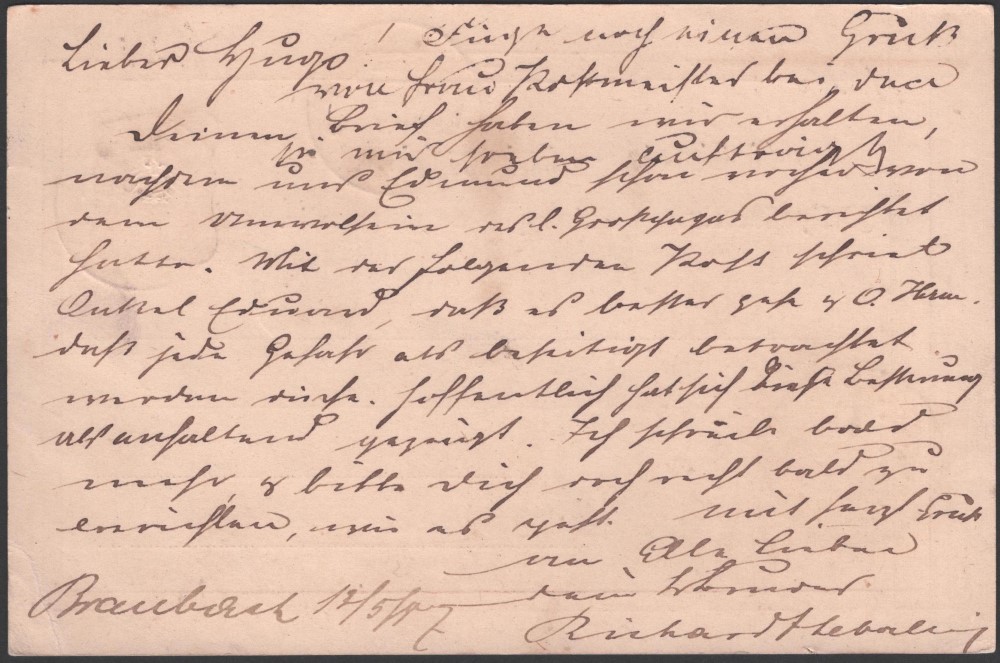 Lieber Hugo! Füge noch einen Gruß
von Frau Postmeister bei, die
Deinen Brief haben wir erhalten,
sie mir soeben aufträgt
nachdem uns Edmund schon vorher von
dem Unwohlsein des l. Großpapas berichtet
hatte. Mit der folgenden Post schrieb
Onkel Eduard, daß es besser gehe & O. Herm.
daß jede Gefahr als beseitigt betrachtet
werden dürfe. Hoffentlich hat sich diese Besserung
als anhaltend gezeigt. Ich schreibe bald
mehr, & bitte Dich doch recht bald zu
berichten, wie es geht. Mit herzl Gruß
an Alle Lieben
dein Bruder
Braubach 12/5/87
Richard